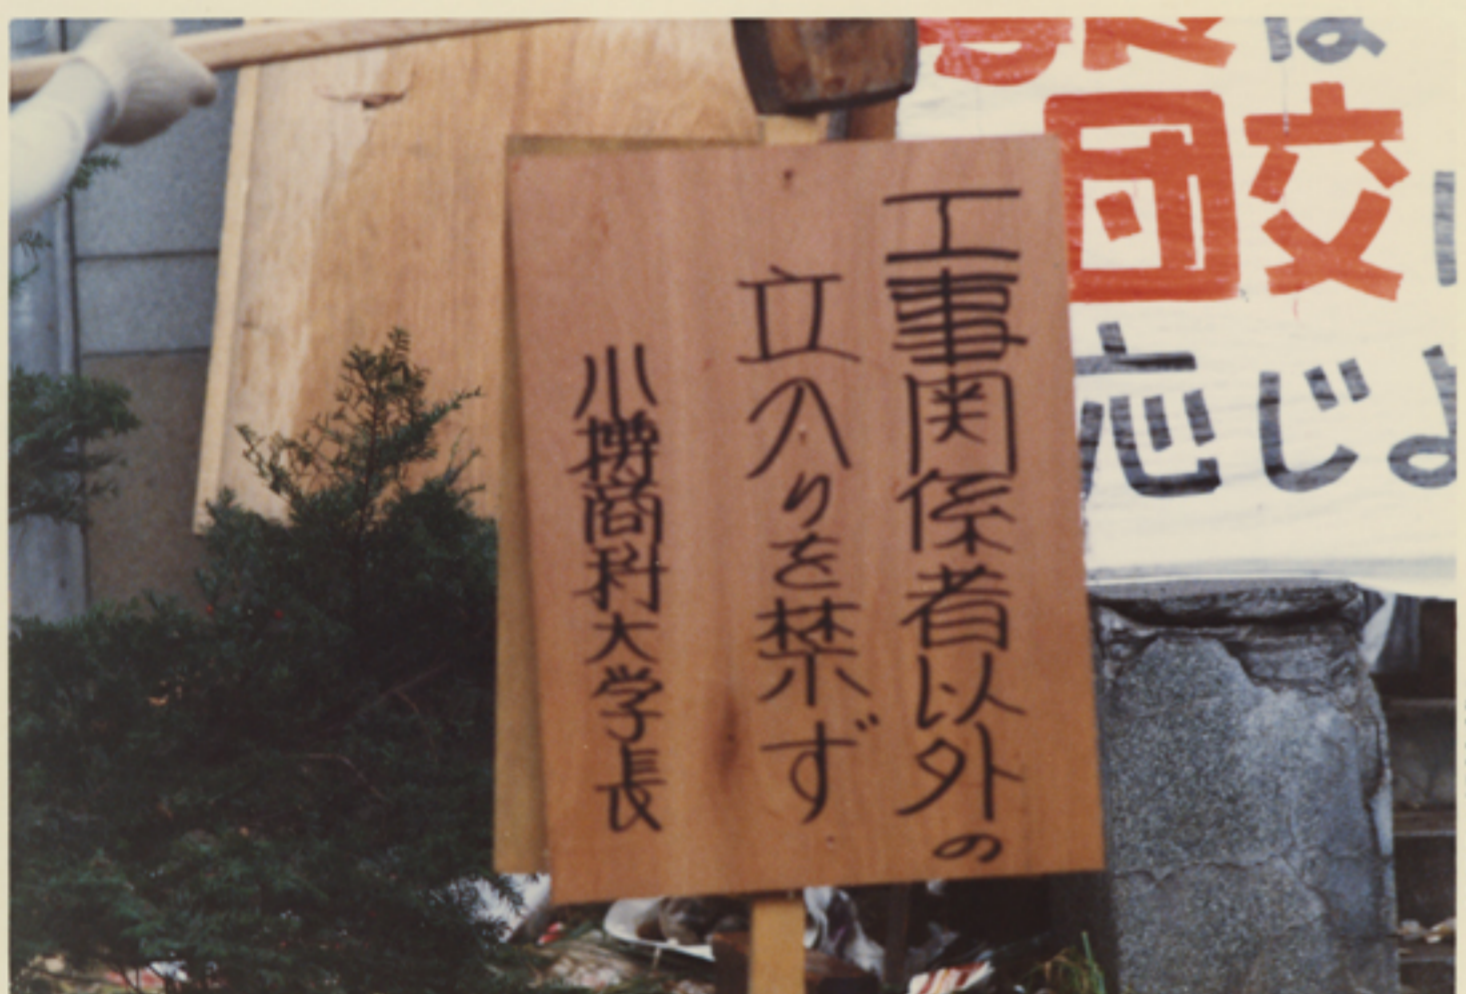 工事関係者以外の
立入りを禁ず
小樽商科大学長
は
団交
応じよ